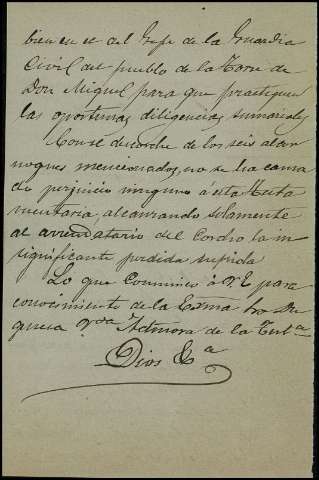 bien en el del Gefe de la Guardia
Civil del pueblo de la Torre de
Don Miguel para que practiquen
las oportunas diligencias sumariales
Con el descorche de los seis alcor
noques mencionados, no se ha causa
do perjuicio ninguno á esta Testa
mentaria, alcanzando solamente
al arrendatario del Corcho la in
significante perdida sufrida
Lo que Comunico á V. E. para
conocimiento de la Exma Sra Du
quesa Admora de la Testa
Dios &a